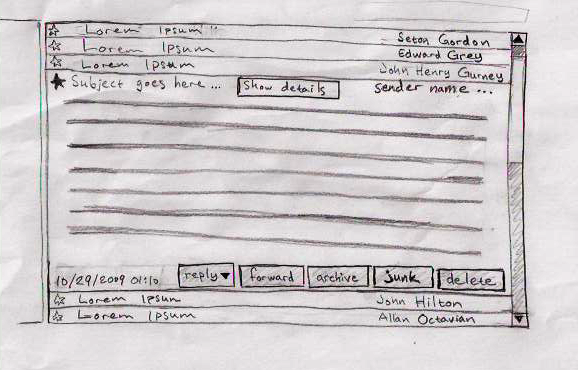 Lorem Ipsum Seton Gordon
Lorem Ipsum Edward Grey
Lorem Ipsum John Henry Gurney
Subject goes here ... Show details sender name ...
10/29/2009 01:10 reply forward archive junk delete
Lorem Ipsum John Hilton
Lorem Ipsum Allan Octavian